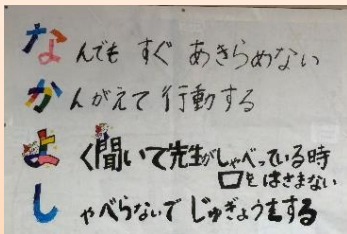 なんでも すぐ あきらめない
かんがえて 行動する
よく聞いて先生がしゃべっている時
口をはさまない
しゃべらないで じゅぎょうをする